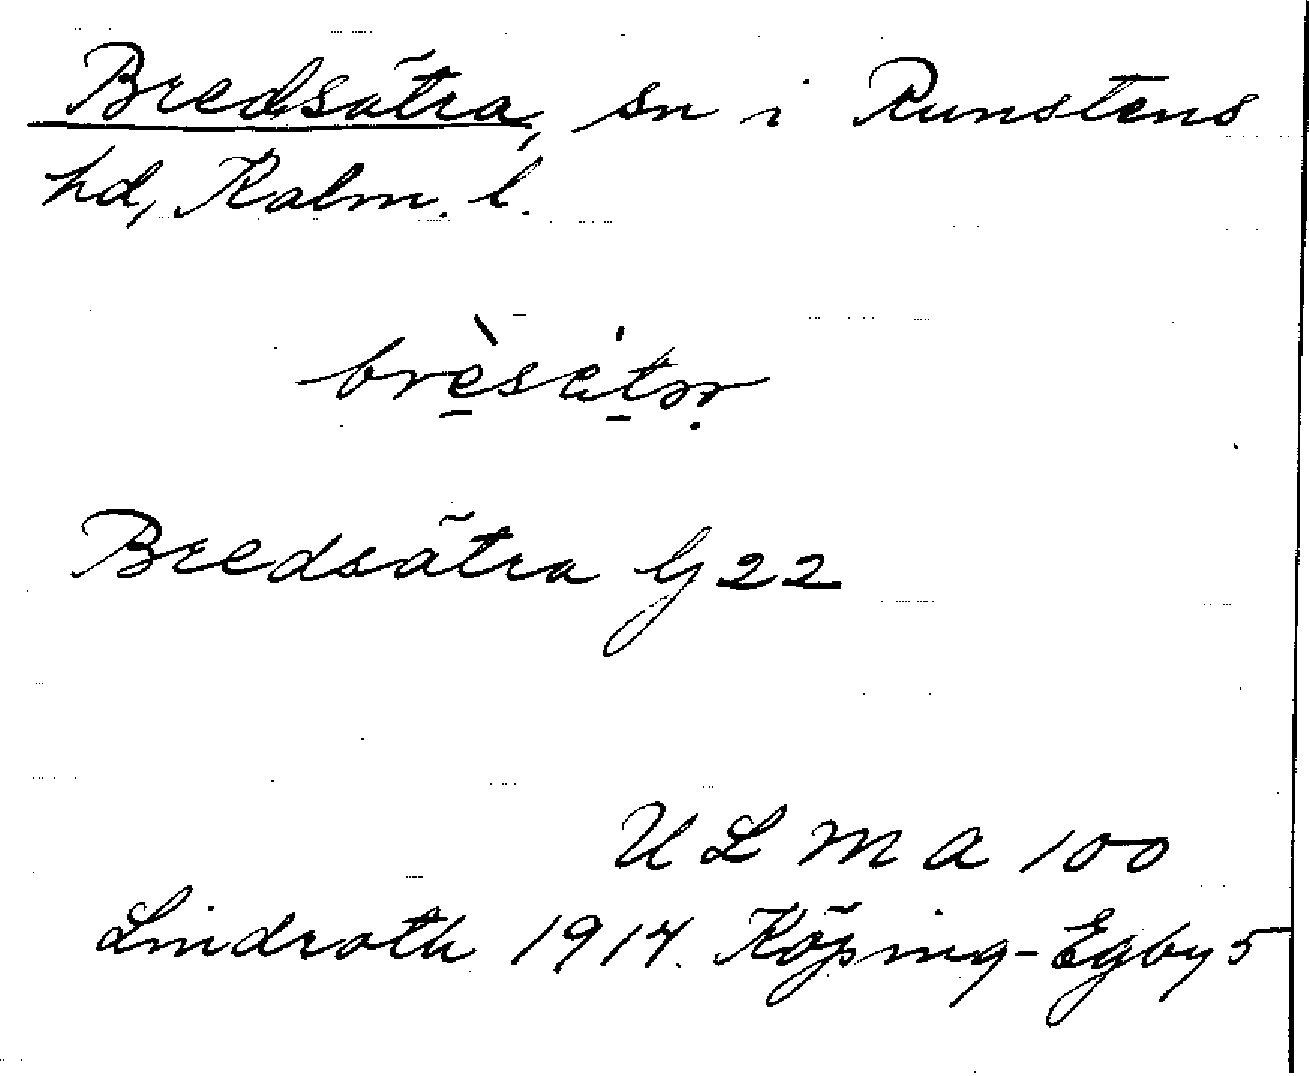 Bredsätra, sn i Runstens
hd, Kalm. l.
Bredsätra G 22
ULMA 100
Lindroth 1914. Köping-Egby 5